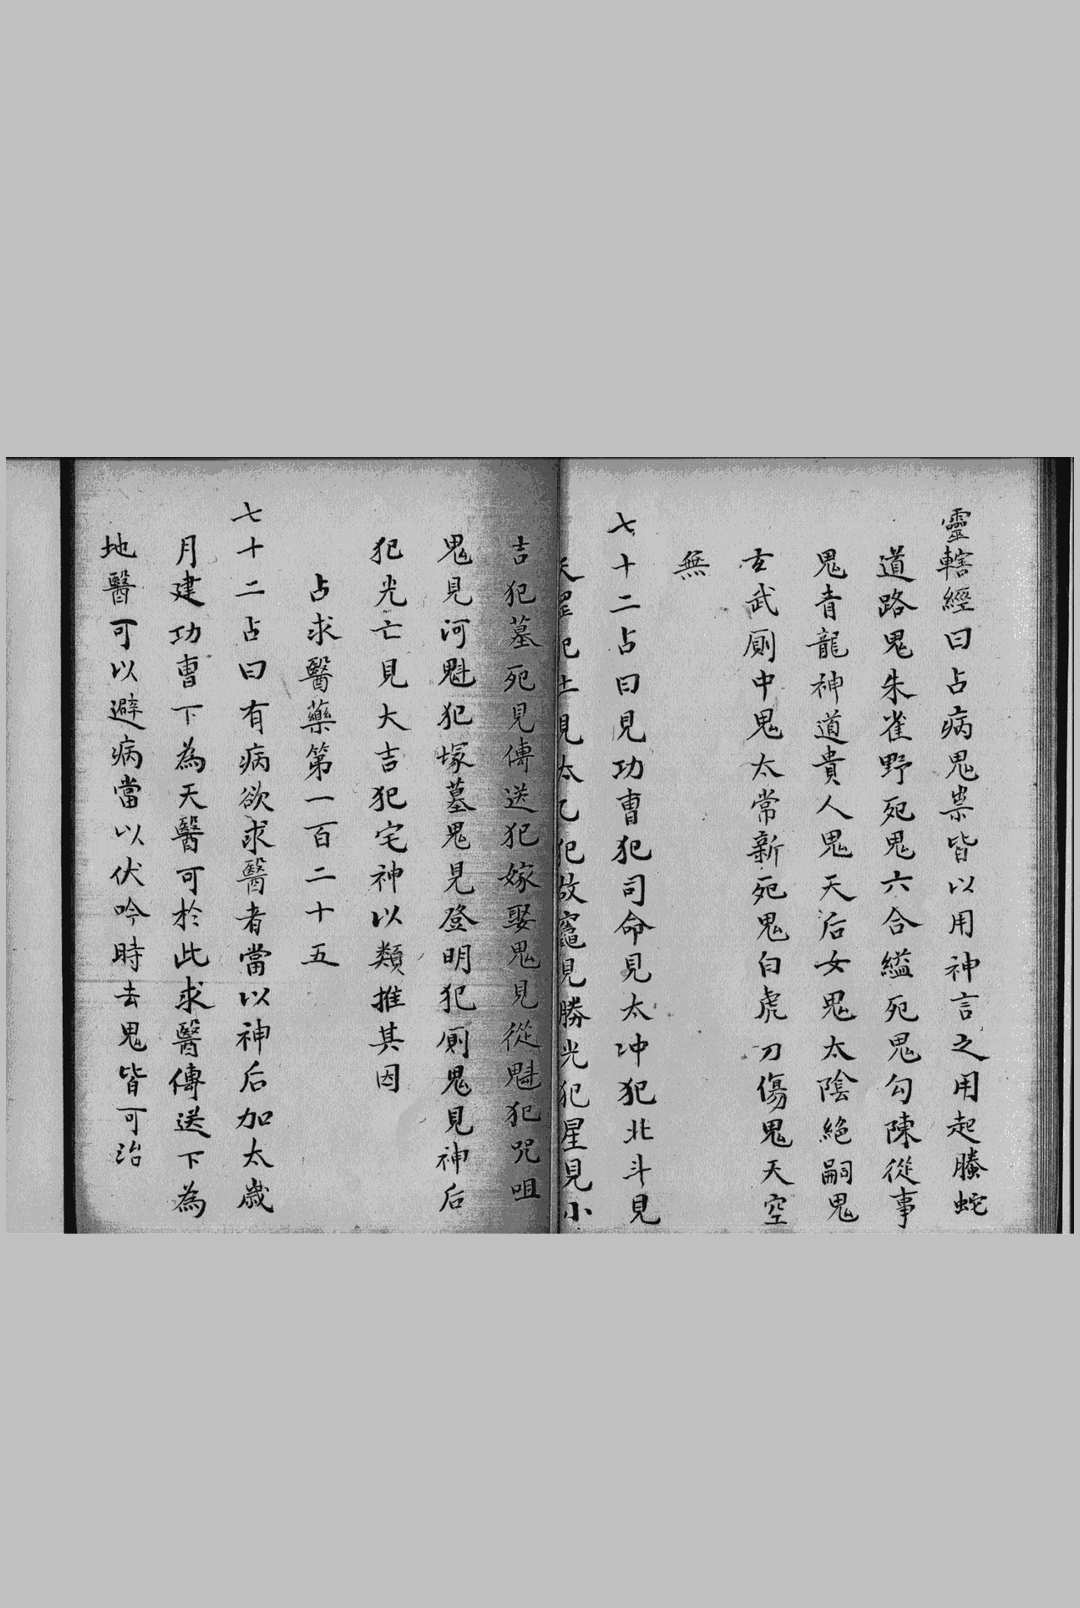 靈轄經曰占病鬼祟皆以用神言之用起螣蛇
道路鬼朱雀野死鬼六合縊死鬼勾陳從事
鬼青龍神道貴人鬼天后女鬼太陰絕嗣鬼
玄武厠中鬼太常新死鬼白虎刀傷鬼天空
無
七十二占曰見功曹犯司命見太冲犯北斗見
天罡犯土見太乙犯故竈見勝光犯星見小
吉犯墓死見傳送犯嫁娶鬼見從魁犯咒咀
鬼見河魁犯塚墓鬼見登明犯厠鬼見神后
犯光亡見大吉犯宅神以類推其因
占求醫藥第一百二十五
七十二占曰有病欲求醫者當以神后加太歲
月建功曹下為天醫可於此求醫傳送下為
地醫可以避病當以伏吟時去鬼皆可治